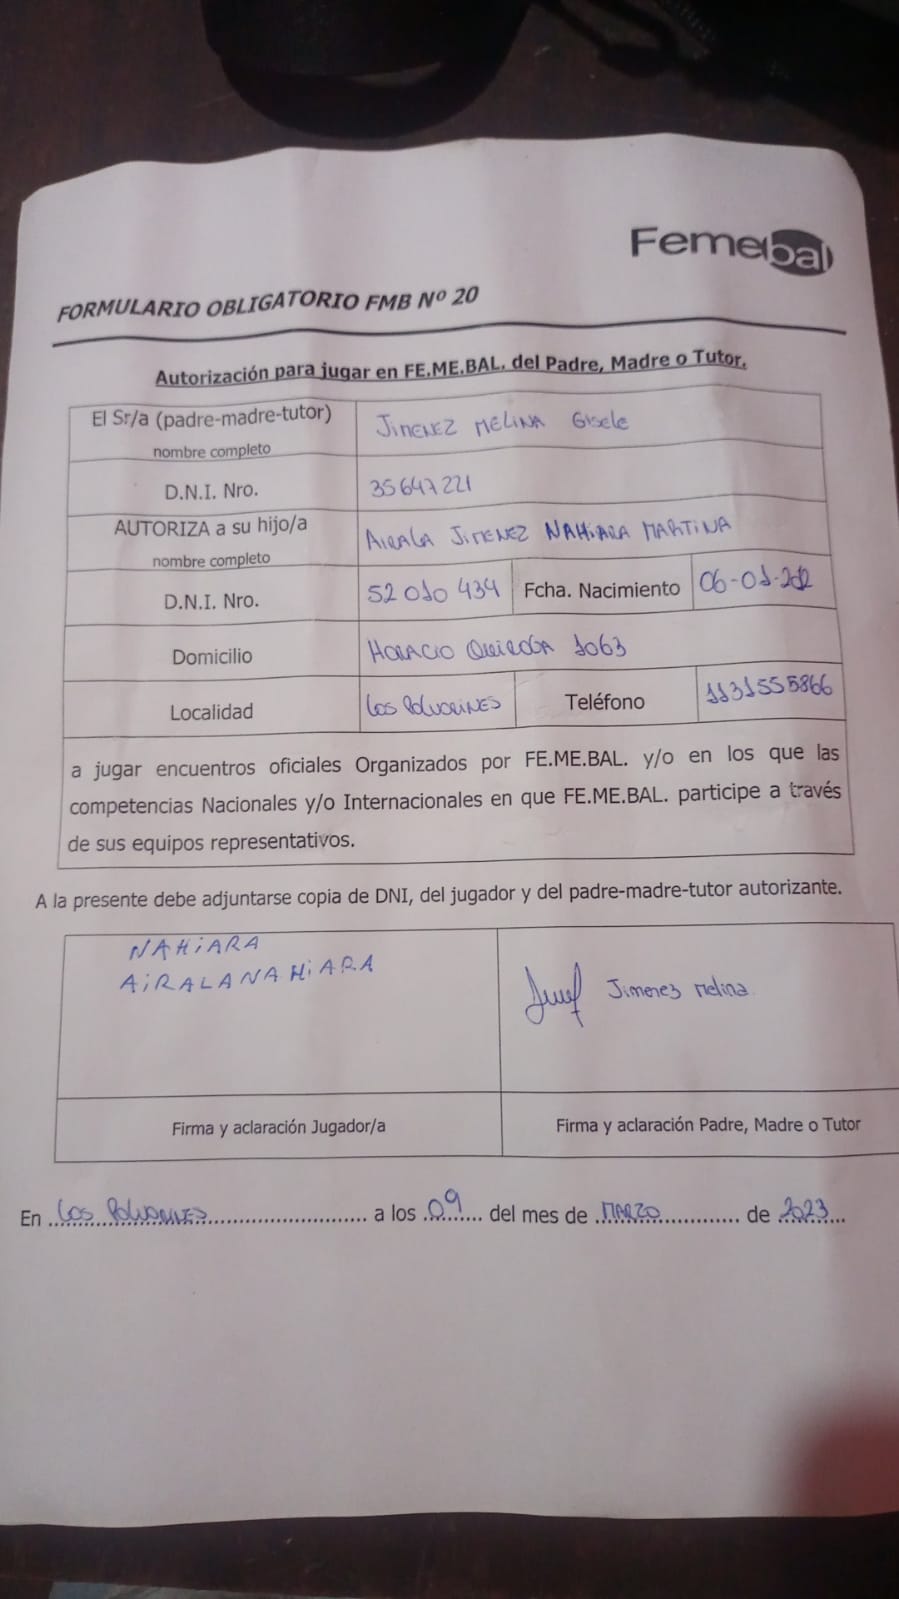 Femebal
FORMULARIO OBLIGATORIO FMB Nº 20
Autorización para jugar en FE.ME.BAL. del Padre, Madre o Tutor.
El Sr/a (padre-madre-tutor)
nombre completo
JIMENEZ MELINA Gisele
D.N.I. Nro.
35647221
AUTORIZA a su hijo/a
nombre completo
AIRALA JIMENEZ NAHIARA MARTINA
D.N.I. Nro.
52 010 434
Fcha. Nacimiento
06-01-2012
Domicilio
HORACIO QUIROGA 1063
Localidad
Los Polvorines
Teléfono
1131555866
a jugar encuentros oficiales Organizados por FE.ME.BAL. y/o en los que las
competencias Nacionales y/o Internacionales en que FE.ME.BAL. participe a través
de sus equipos representativos.
A la presente debe adjuntarse copia de DNI, del jugador y del padre-madre-tutor autorizante.
NAHiARA
AiRALA NAHiARA
Jimenez Melina
Firma y aclaración Jugador/a
Firma y aclaración Padre, Madre o Tutor
En Los Polvorines a los 09 del mes de MARZO de 2023